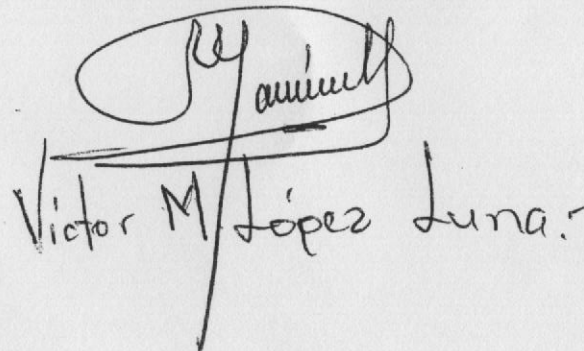 Víctor M López Luna.-